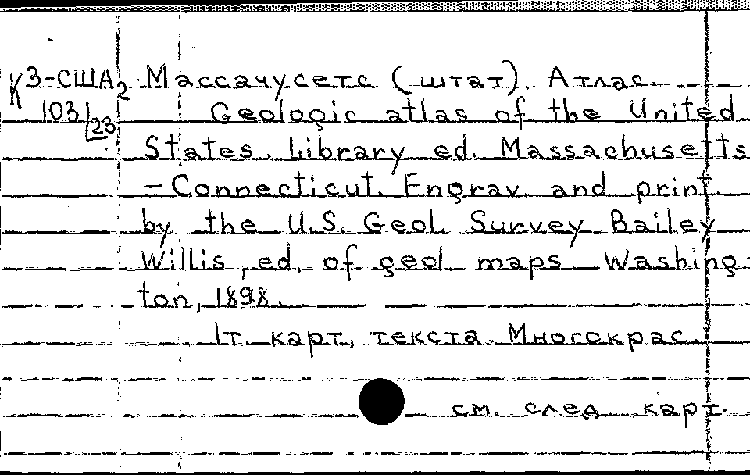 К 3-США2 Массачусетс (штат). Атлас.
103/23 Geologic atlas of the United
States. Library ed. Massachusetts
-Connecticut. Engrav. and print.
by the U.S. Geol. Survey Bailey
Willis, ed. of geol. maps Washing-
ton, 1898.
1т. карт, текста. Многокрас.
см. след карт.